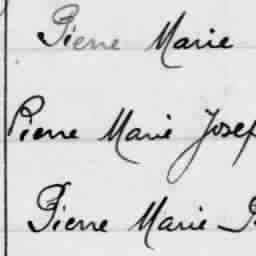 Pierre Marie
Pierre Marie Josep
Pierre Marie